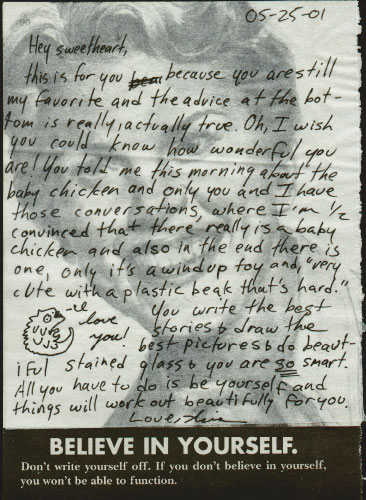 05-25-01
Hey sweetheart,
this is for you because you are still
my favorite and the advice at the bot-
tom is really, actually true. Oh, I wish
you could know how wonderful you
are! You told me this morning about the
baby chicken and only you and I have
those conversations, where I'm 1/2
convinced that there really is a baby
chicken and also in the end there is
one, only it's a windup toy and, "very
cute with a plastic beak that's hard."
love you!
You write the best
stories & draw the
best pictures & do beaut-
iful stained glass & you are so smart.
All you have to do is be yourself and
things will work out beautifully for you.
Love,
BELIEVE IN YOURSELF.
Don't write yourself off. If you don't believe in yourself,
you won't be able to function.